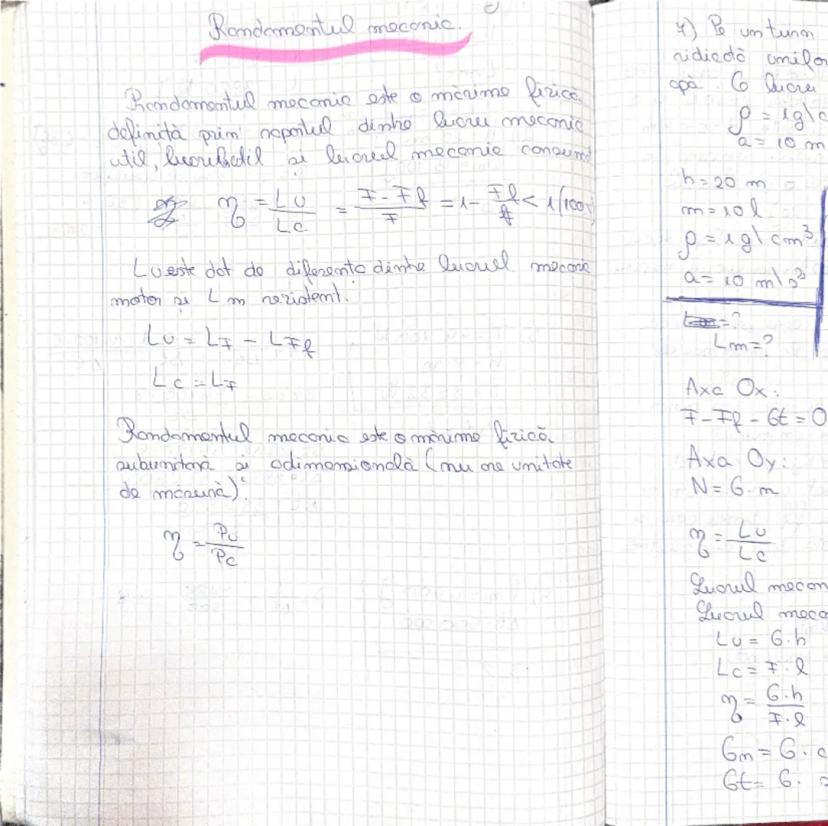 Randamentul mecanic.
Randamentul mecanic este o mărime fizică
definită prin raportul dintre lucru mecanic
util, și lucrul mecanic consumat
η = LU/LC = F-Ff/F = 1- Ff/F < 1 (100%)
LU este dat de diferența dintre lucrul mecanic
motor și L m rezistent.
LU = LF - LFf
LC = LF
Randamentul mecanic este o mărime fizică
subunitară și adimensională (nu are unitate
de măsură).
η = PU/PC
7) Pe un turn
ridică
apă. G lucru
ρ = 1g\c
a = 10 m
h = 20 m
m = 10 l
ρ = 1g\cm³
a = 10 m\s²
=?
Lm = ?
Axa Ox:
F - Ff - Gt = 0
Axa Oy:
N = G m
η = LU/LC
Lucrul mecan
Lucrul meca
LU = G·h
LC = F·l
η = G·h/F·l
Gm = G·c
Gt = G·